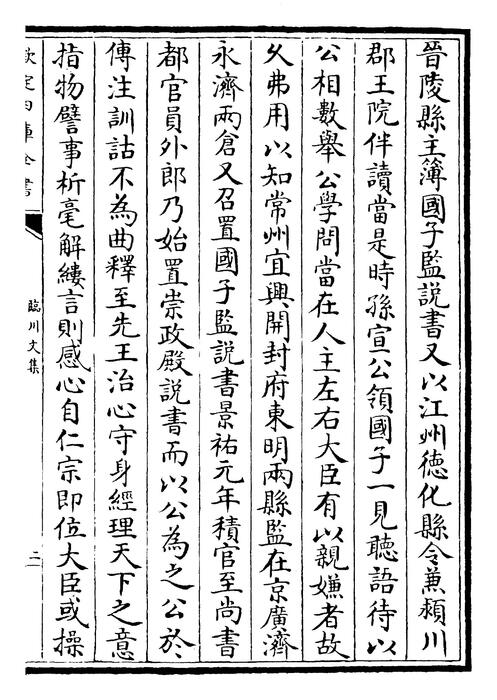 晉陵縣主簿國子監説書又以江州德化縣令兼潁川
郡王院伴讀當是時孫宣公領國子一見聽語待以
公相數舉公學問當在人主左右大臣有以親嫌者故
乆弗用以知常州宜興開封府東明兩縣監在京廣濟
永濟兩倉又召置國子監説書景祐元年積官至尚書
都官員外郎乃始置崇政殿説書而以公為之公於
傳注訓詁不為曲釋至先王治心守身經理天下之意
指物譬事析毫解縷言則感心自仁宗即位大臣或操
欽定四庫全書
臨川文集
二